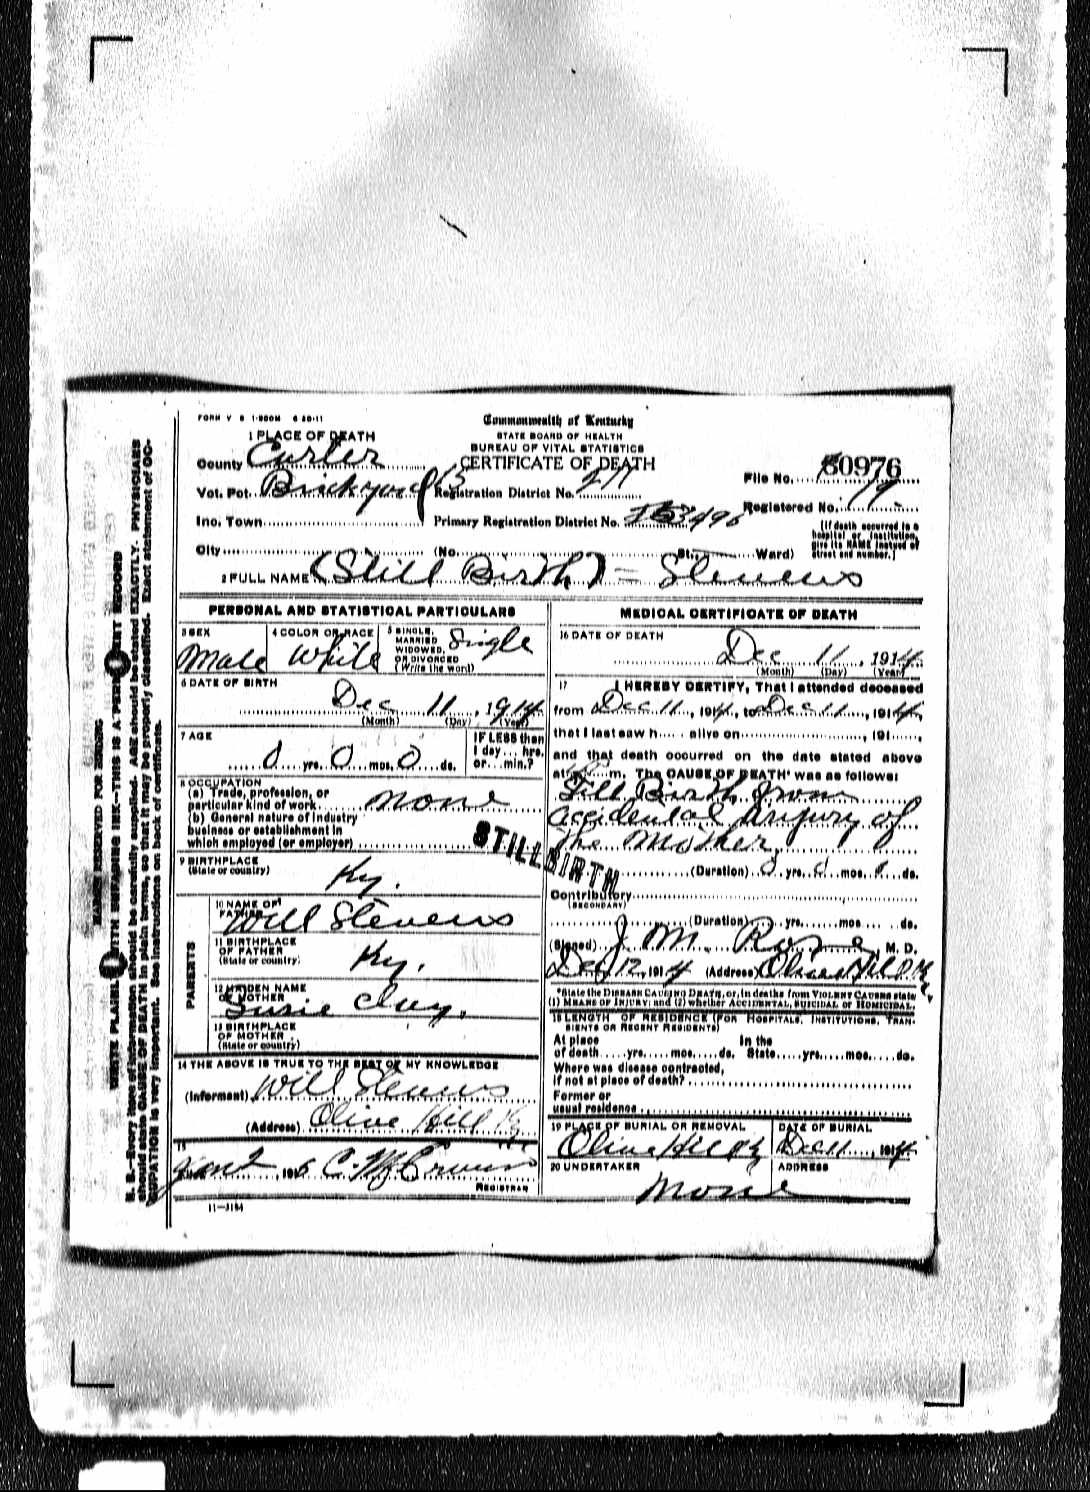 FORM V S 1-500M 6 20-11
Commonwealth of Kentucky
STATE BOARD OF HEALTH
BUREAU OF VITAL STATISTICS
CERTIFICATE OF DEATH
1 PLACE OF DEATH
County Carter
Vot. Pct. Brickyard 15 Registration District No. 211
File No. 30976
Registered No. 19
Inc. Town Primary Registration District No.
[If death occurred in a hospital or institution, give its NAME instead of street and number.]
City (No. St., Ward)
2 FULL NAME (Still Birth) - Stevens
PERSONAL AND STATISTICAL PARTICULARS
3 SEX Male
4 COLOR OR RACE White
5 SINGLE, MARRIED WIDOWED, OR DIVORCED (Write the word) Single
6 DATE OF BIRTH
Dec 11, 1914
(Month) (Day) (Year)
7 AGE
0 yrs. 0 mos. 0 ds.
IF LESS than 1 day... hrs. or... min.?
8 OCCUPATION
(a) Trade, profession, or particular kind of work none
(b) General nature of industry business or establishment in which employed (or employer)
STILLBIRTH
9 BIRTHPLACE
(State or country) Ky.
PARENTS
10 NAME OF FATHER Will Stevens
11 BIRTHPLACE OF FATHER (State or country) Ky.
12 MAIDEN NAME OF MOTHER Susie Clay.
13 BIRTHPLACE OF MOTHER (State or country)
14 THE ABOVE IS TRUE TO THE BEST OF MY KNOWLEDGE
(Informant) Will Stevens
(Address) Olive Hill Ky
15
Jan 2, 1915
REGISTRAR
11-3184
MEDICAL CERTIFICATE OF DEATH
16 DATE OF DEATH
Dec 11, 1914
(Month) (Day) (Year)
17 I HEREBY CERTIFY, That I attended deceased
from Dec 11, 1914, to Dec 11, 1914,
that I last saw h alive on, 191,
and that death occurred on the date stated above
at m. The CAUSE OF DEATH* was as follows:
Still Birth from
accidental Injury of
the Mother.
(Duration) 0 yrs. 0 mos. 0 ds.
Contributory
(SECONDARY)
(Duration) yrs. mos. ds.
(Signed) J. M. Rose, M. D.
Dec 12, 1914 (Address) Olive Hill Ky.
*State the DISEASE CAUSING DEATH, or, in deaths from VIOLENT CAUSES state (1) MEANS OF INJURY; and (2) whether ACCIDENTAL, SUICIDAL or HOMICIDAL.
18 LENGTH OF RESIDENCE (FOR HOSPITALS, INSTITUTIONS, TRANSIENTS OR RECENT RESIDENTS)
At place of death yrs. mos. ds. In the State yrs. mos. ds.
Where was disease contracted,
if not at place of death?
Former or
usual residence
19 PLACE OF BURIAL OR REMOVAL Olive Hill Ky
DATE OF BURIAL Dec 11, 1914
20 UNDERTAKER None
ADDRESS
MARGIN RESERVED FOR BINDING
WRITE PLAINLY, WITH UNFADING INK—THIS IS A PERMANENT RECORD
N. B.—Every item of information should be carefully supplied. AGE should be stated EXACTLY. PHYSICIANS
should state CAUSE OF DEATH in plain terms, so that it may be properly classified. Exact statement of OC-
CUPATION is very important. See instructions on back of certificate.